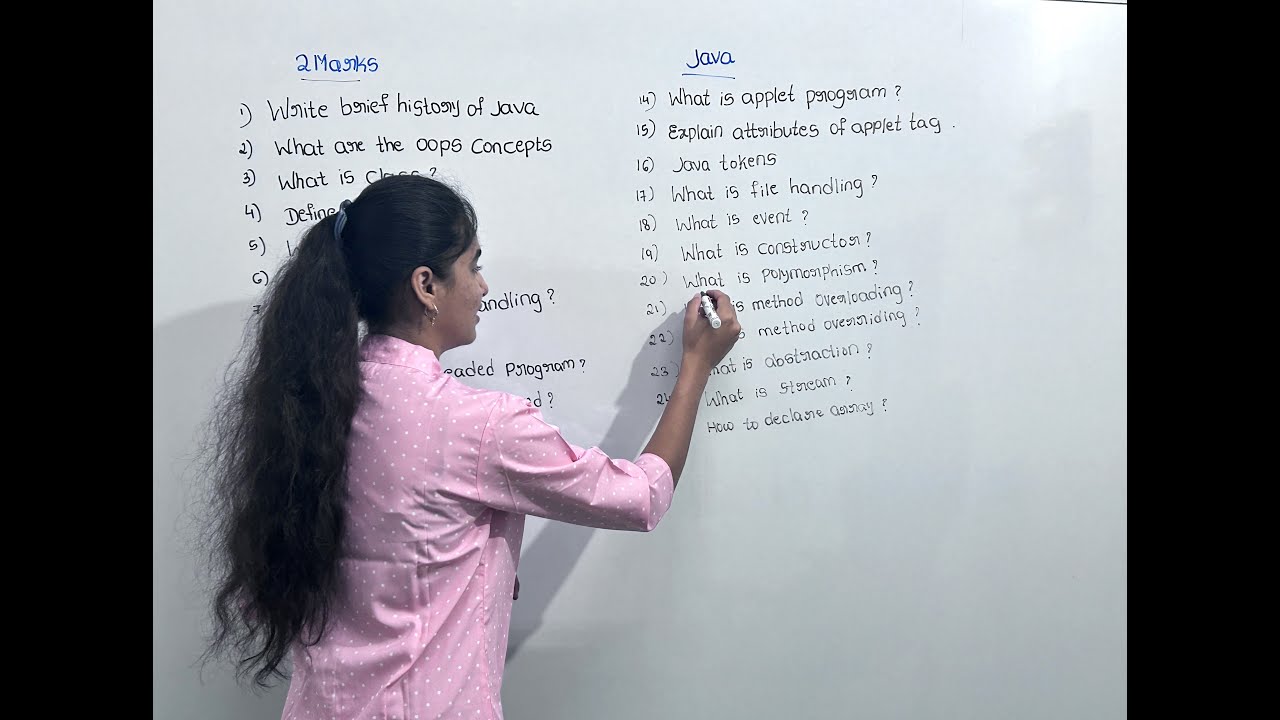 2 Marks
1) Write brief history of Java
2) What are the OOPS Concepts
3) What is class ?
4) Define
5)
6)
andling ?
eaded Program ?
ed ?
Java
14) What is applet program ?
15) Explain attributes of applet tag .
16) Java tokens
17) What is file handling ?
18) What is event ?
19) What is constructor ?
20) What is Polymorphism ?
21) is method overloading ?
22) is method overriding ?
23) What is abstraction ?
24 What is stream ?
How to declare array ?